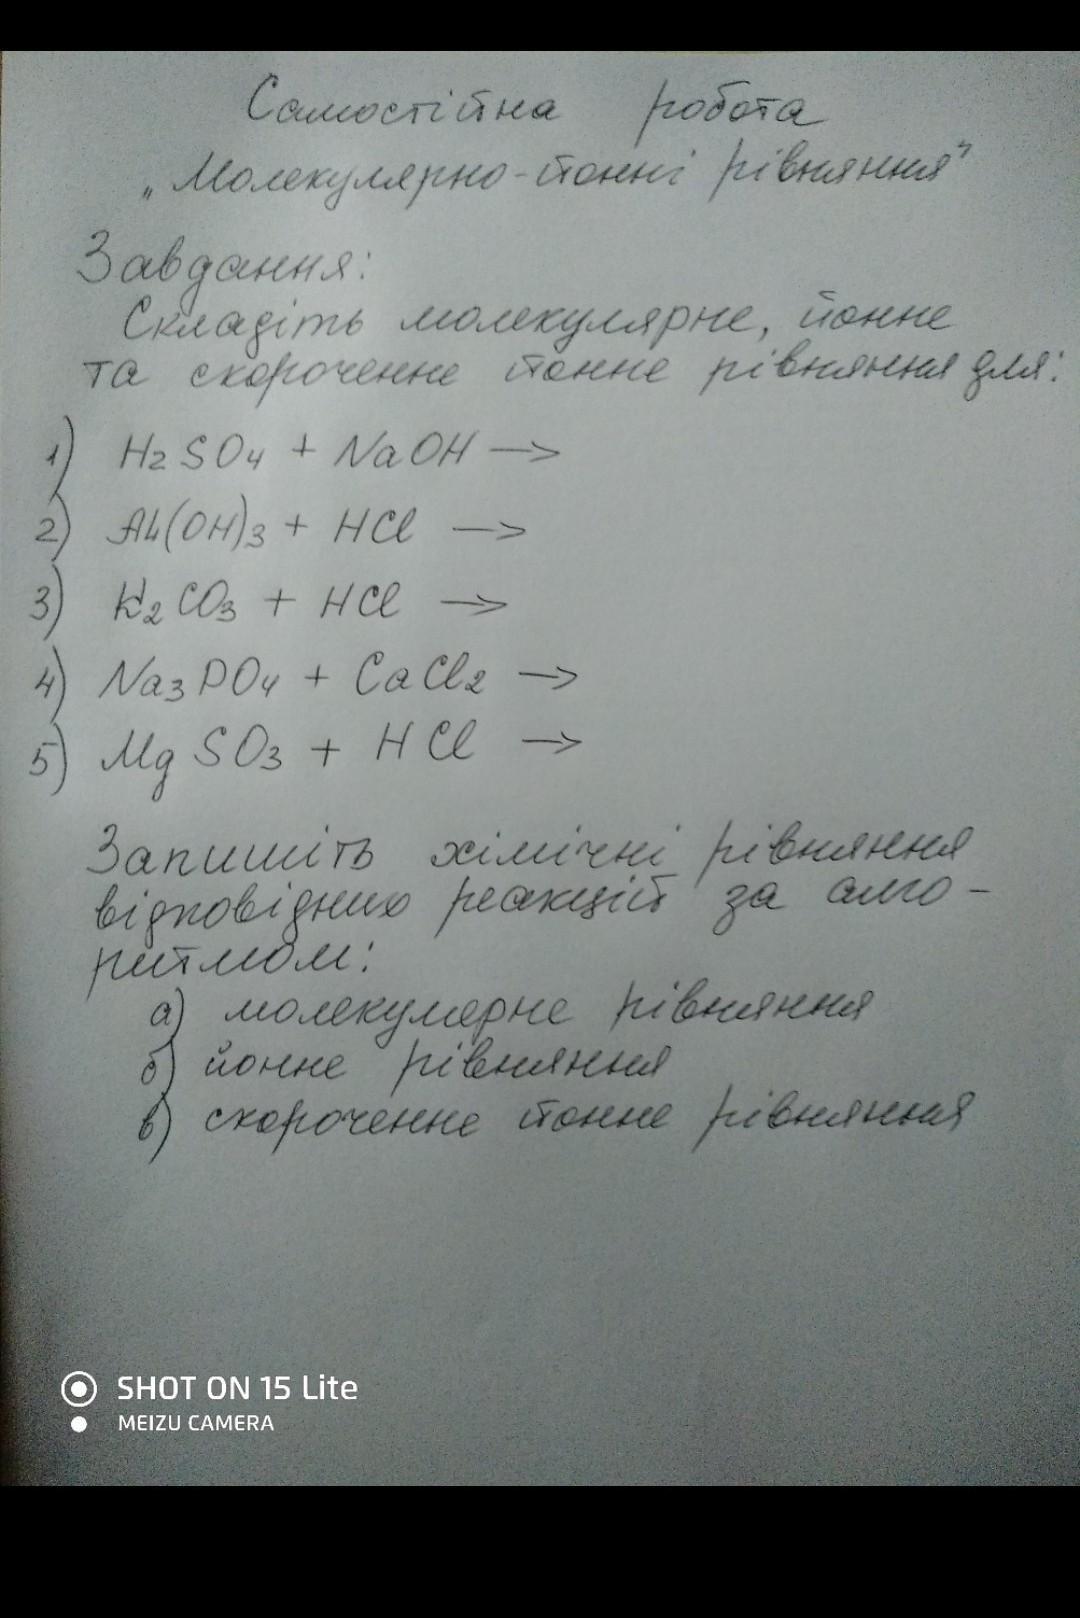 Самостійна робота
„Молекулярно-йонні рівняння"
Завдання:
Складіть молекулярне, йонне
та скорочене йонне рівняння для:
1) H2SO4 + NaOH →
2) Al(OH)3 + HCl →
3) K2CO3 + HCl →
4) Na3PO4 + CaCl2 →
5) MgSO3 + HCl →
Запишіть хімічні рівняння
відповідних реакцій за алго-
ритмом:
а) молекулярне рівняння
б) йонне рівняння
в) скорочене йонне рівняння
SHOT ON 15 Lite
MEIZU CAMERA